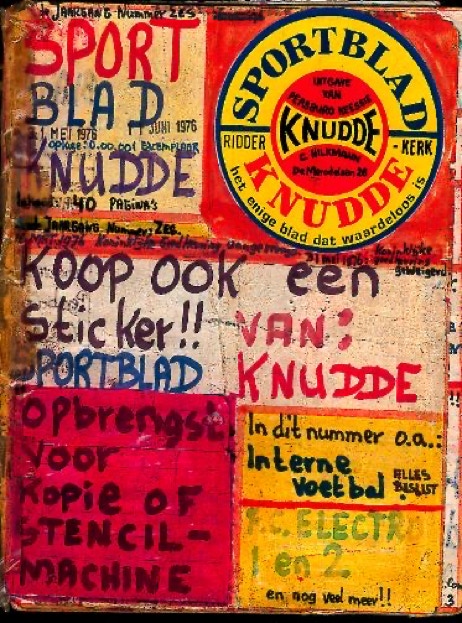 JAARGANG Nummer ZES
SPORT
BLAD
1 MEI 1976 1 JUNI 1976
oplage: 0.00.001 EXEMPLAAR
KNUDDE
40 PAGINA'S
JAARGANG, Nummer: ZES.
SPORTBLAD
UITGAVE
VAN
KNUDDE
RIDDER - KERK
KNUDDE
het enige blad dat waardeloos is
21 mei 1976: Koninklijke
geweigerd
Koop ook een
sticker!! VAN:
SPORTBLAD KNUDDE
opbrengst
voor
kopie OF
STENCIL-
MACHINE
In dit nummer o.a.:
Interne
voetbal ALLES
BESLIST
ELECTR
1 en 2
en nog veel meer!!